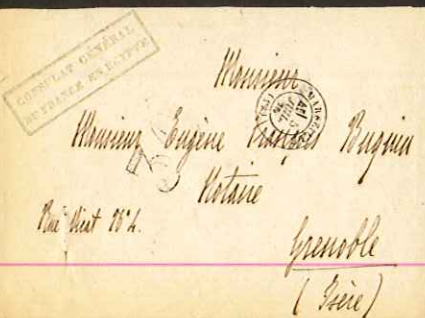 CONSULAT GÉNÉRAL
DE FRANCE EN EGYPTE
Monsieur
Monsieur Eugène François Buquin
Notaire
Rue Vicat N° 4.
Grenoble
(Isère)